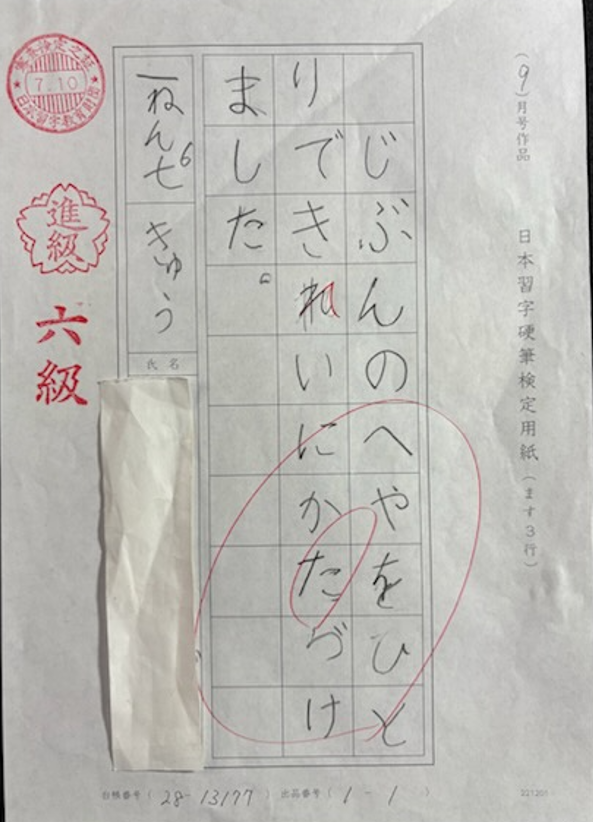 (9)月号作品
日本習字硬筆検定用紙(ます3行)
じぶんのへやをひと
りできれいにかたづけ
ました。
一ねん七6きゅう
氏名
7.10
日本習字教育財団
進級
六級
台帳番号(28-13177) 出品番号(1-1)
221201